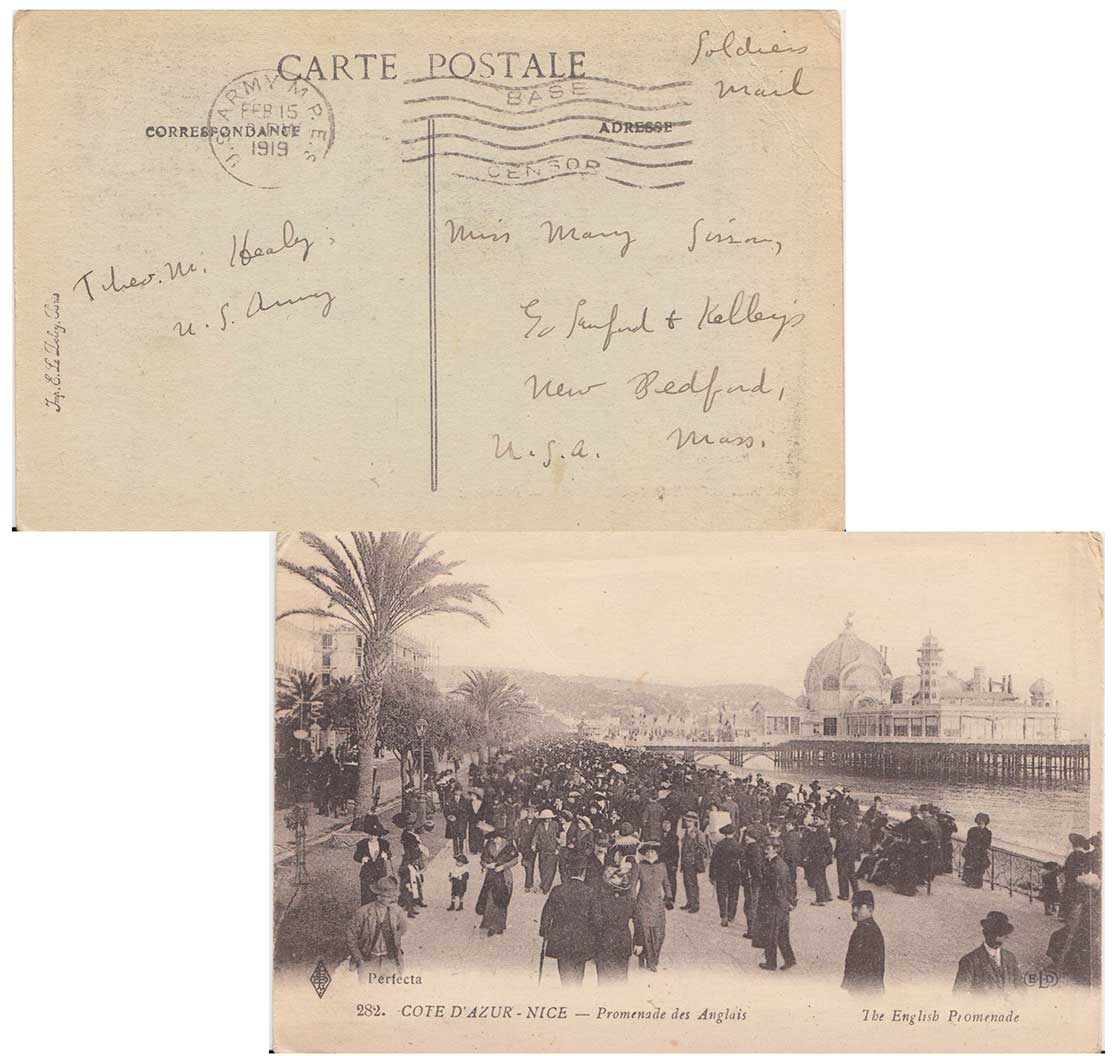 Soldiers
Mail
CARTE POSTALE
U.S. ARMY M.P.E.S.
FEB 15
PM
1919
BASE
CENSOR
CORRESPONDANCE
ADRESSE
Theo. M. Healy,
U. S. Army
Miss Mary Sisson,
c/o Sanford & Kelley's
New Bedford,
Mass.
U.S.A.
Imp. E. Le Deley, Paris
Perfecta
ELD
282. COTE D'AZUR - NICE — Promenade des Anglais
The English Promenade